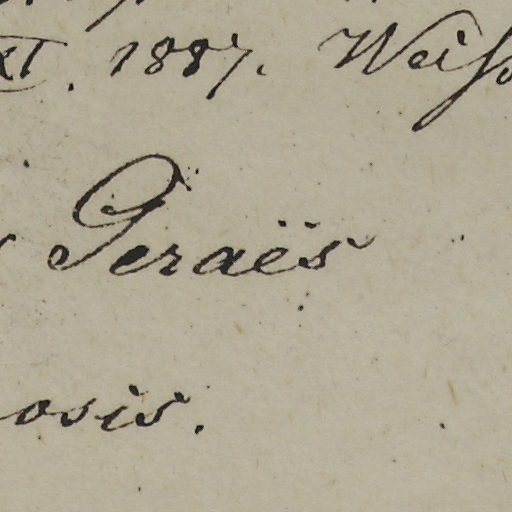 XI. 1887. Weiss
Geraës
osis.